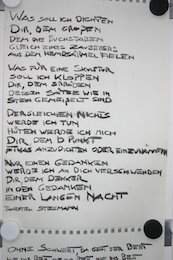 WAS SOLL ICH DICHTEN
DIR, DEM GROßEN
DEM DIE BUCHSTABEN
GLEICH EINES ZAUBERERS
AUS DEM HEMDSÄRMEL FIELEN
WAS FÜR EINE SKULPTUR
SOLL ICH KLOPPEN
DIR, DEM
DESSEN SÄTZE WIE IN
STEIN GEMEIßELT SIND
DERGLEICHEN NICHTS
WERDE ICH TUN
HÜTEN WERDE ICH MICH
DIR DEM PUNKT
ETWAS ANZUDICHTEN ODER
NUR EINEN GEDANKEN
WERDE ICH AN DICH VERSCHWENDEN
DIR DEM DENKER
IN DEN GEDANKEN
EINER LANGEN NACHT
OHNE